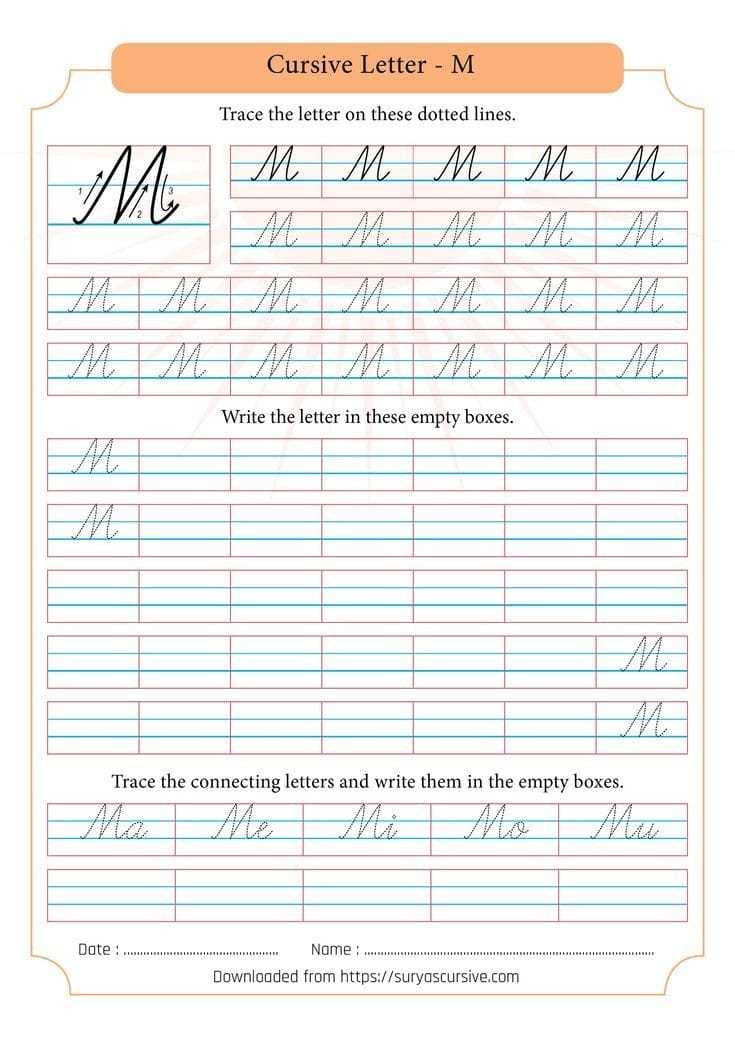 Cursive Letter - M
Trace the letter on these dotted lines.
M M M M M
1 2 3
M
M M M M M
M M M M M M M
M M M M M M M
Write the letter in these empty boxes.
M
M
M
M
Trace the connecting letters and write them in the empty boxes.
Ma Me Mi Mo Mu
Date : ............................................. Name : ....................................................................................
Downloaded from https://suryascursive.com